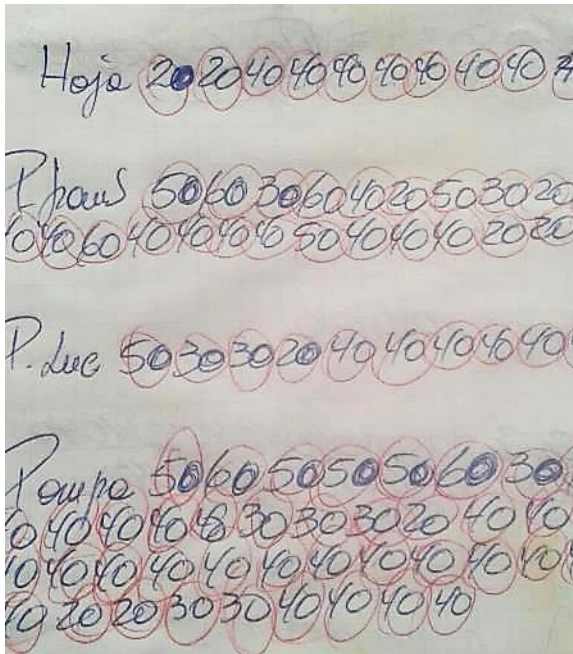 Hoja 20 20 40 40 40 40 40 40 40
50 60 30 60 40 20 50 30 20
40 60 40 40 40 40 50 40 40 40 20 20
P. Luc 50 30 30 20 40 40 40 40 40
Pampa 50 60 50 50 50 60 30
40 40 40 30 30 30 20 40 40
40 40 40 40 40 40 40 40 40 40
40 20 20 30 30 40 40 40 40